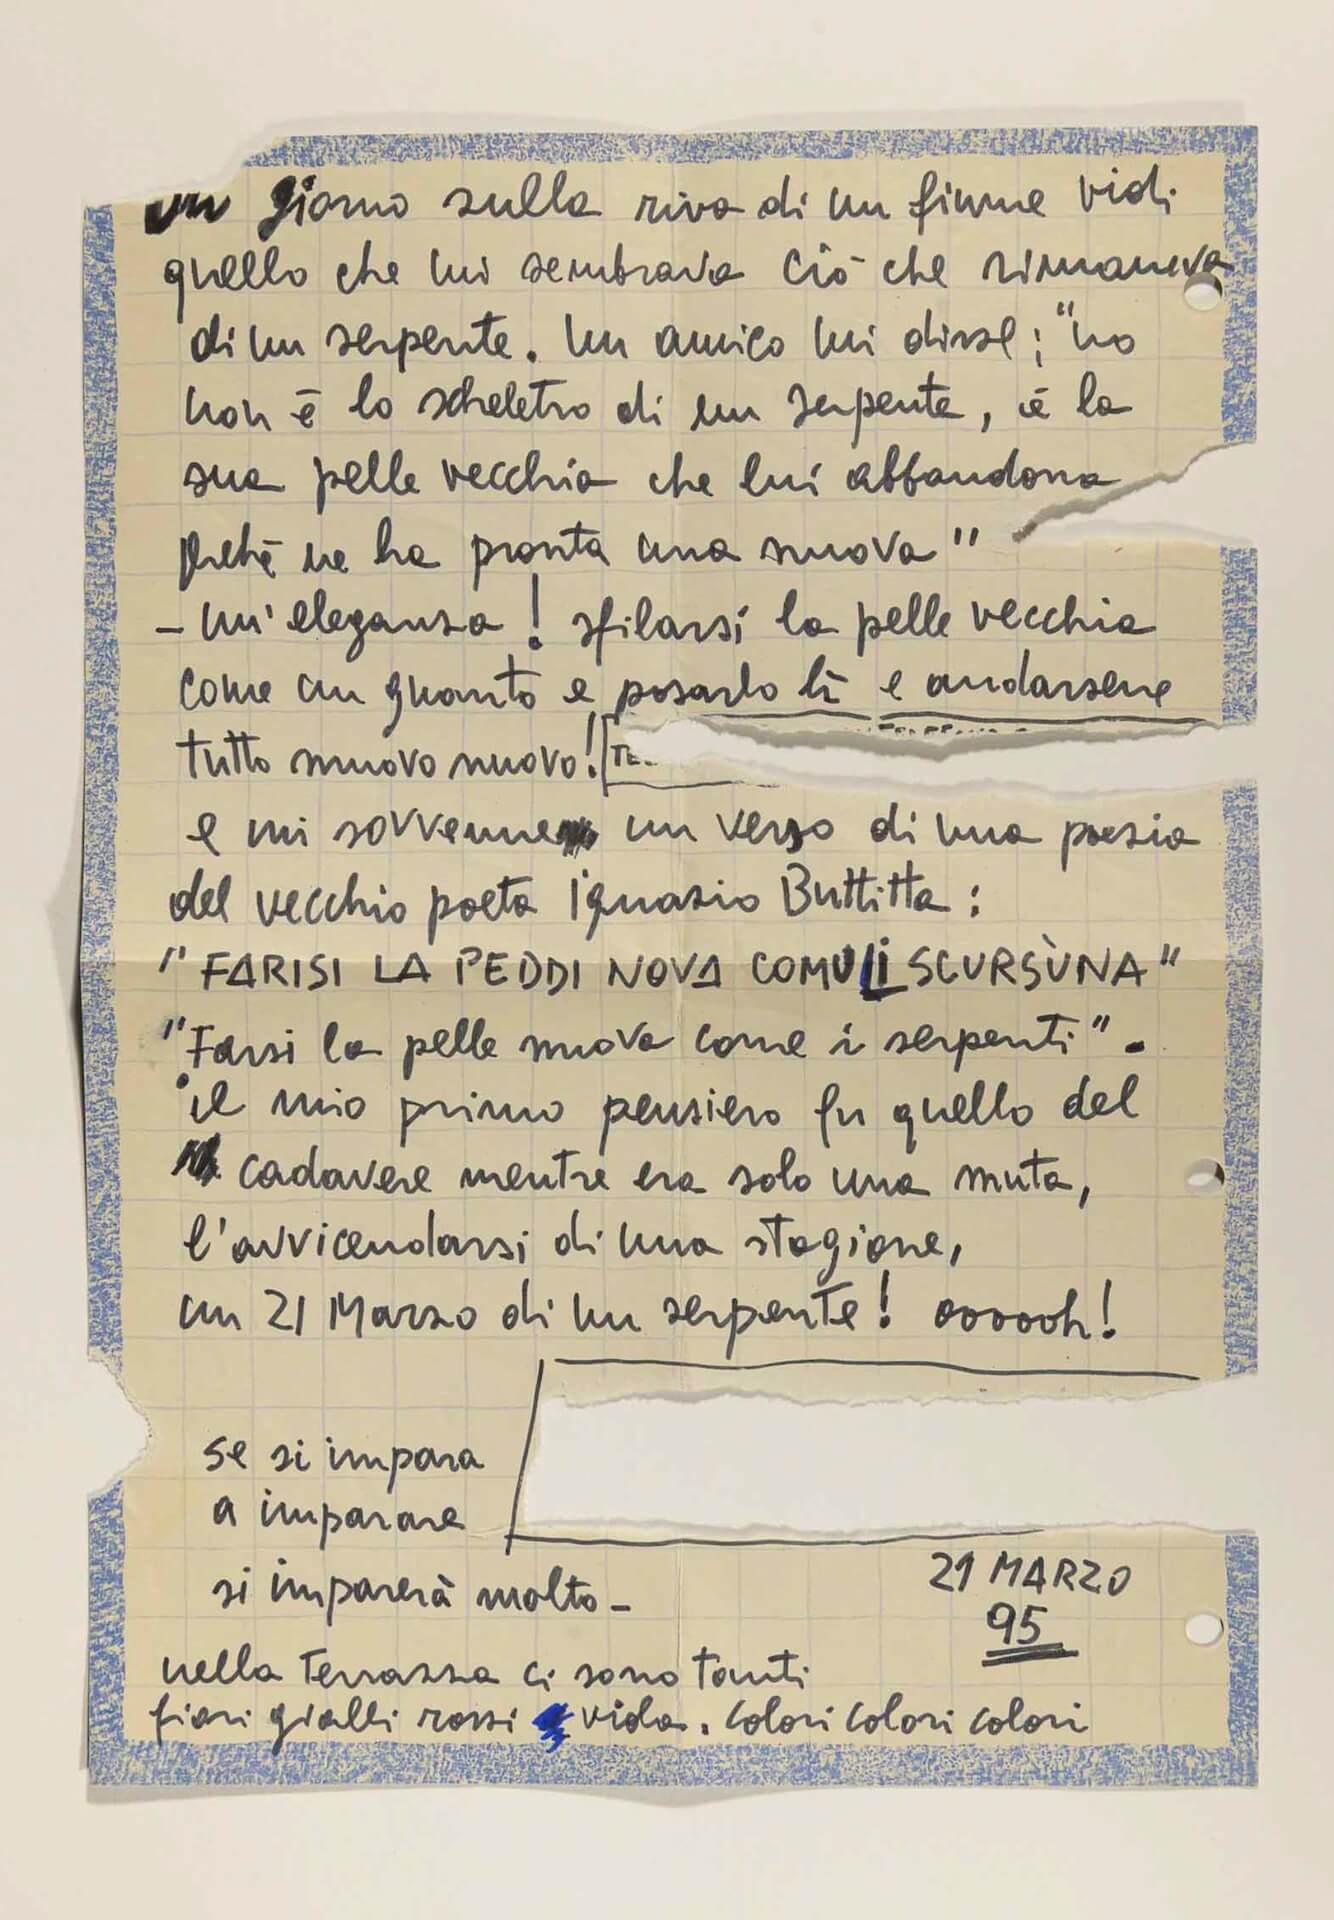 un giorno sulla riva di un fiume vidi
quello che mi sembrava ciò che rimaneva
di un serpente. un amico mi disse: "no
non è lo scheletro di un serpente, è la
sua pelle vecchia che lui abbandona
perché ne ha pronta una nuova"
- un'eleganza! sfilarsi la pelle vecchia
come un guanto e posarlo lì e andarsene
tutto nuovo nuovo!
e mi sovvenne un verso di una poesia
del vecchio poeta Ignazio Buttitta:
"FARISI LA PEDDI NOVA COMU LI SCURSÙNA"
"Farsi la pelle nuova come i serpenti".
il mio primo pensiero fu quello del
cadavere mentre era solo una muta,
l'avvicendarsi di una stagione,
un 21 Marzo di un serpente! oooooh!
se si impara
a imparare
si imparerà molto-
21 MARZO
95
nella Terrazza ci sono tanti
fiori gialli rossi viola. colori colori colori